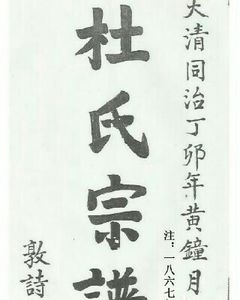 大清同治丁卯年黄鐘月
注：一八六七
杜氏宗譜
敦詩